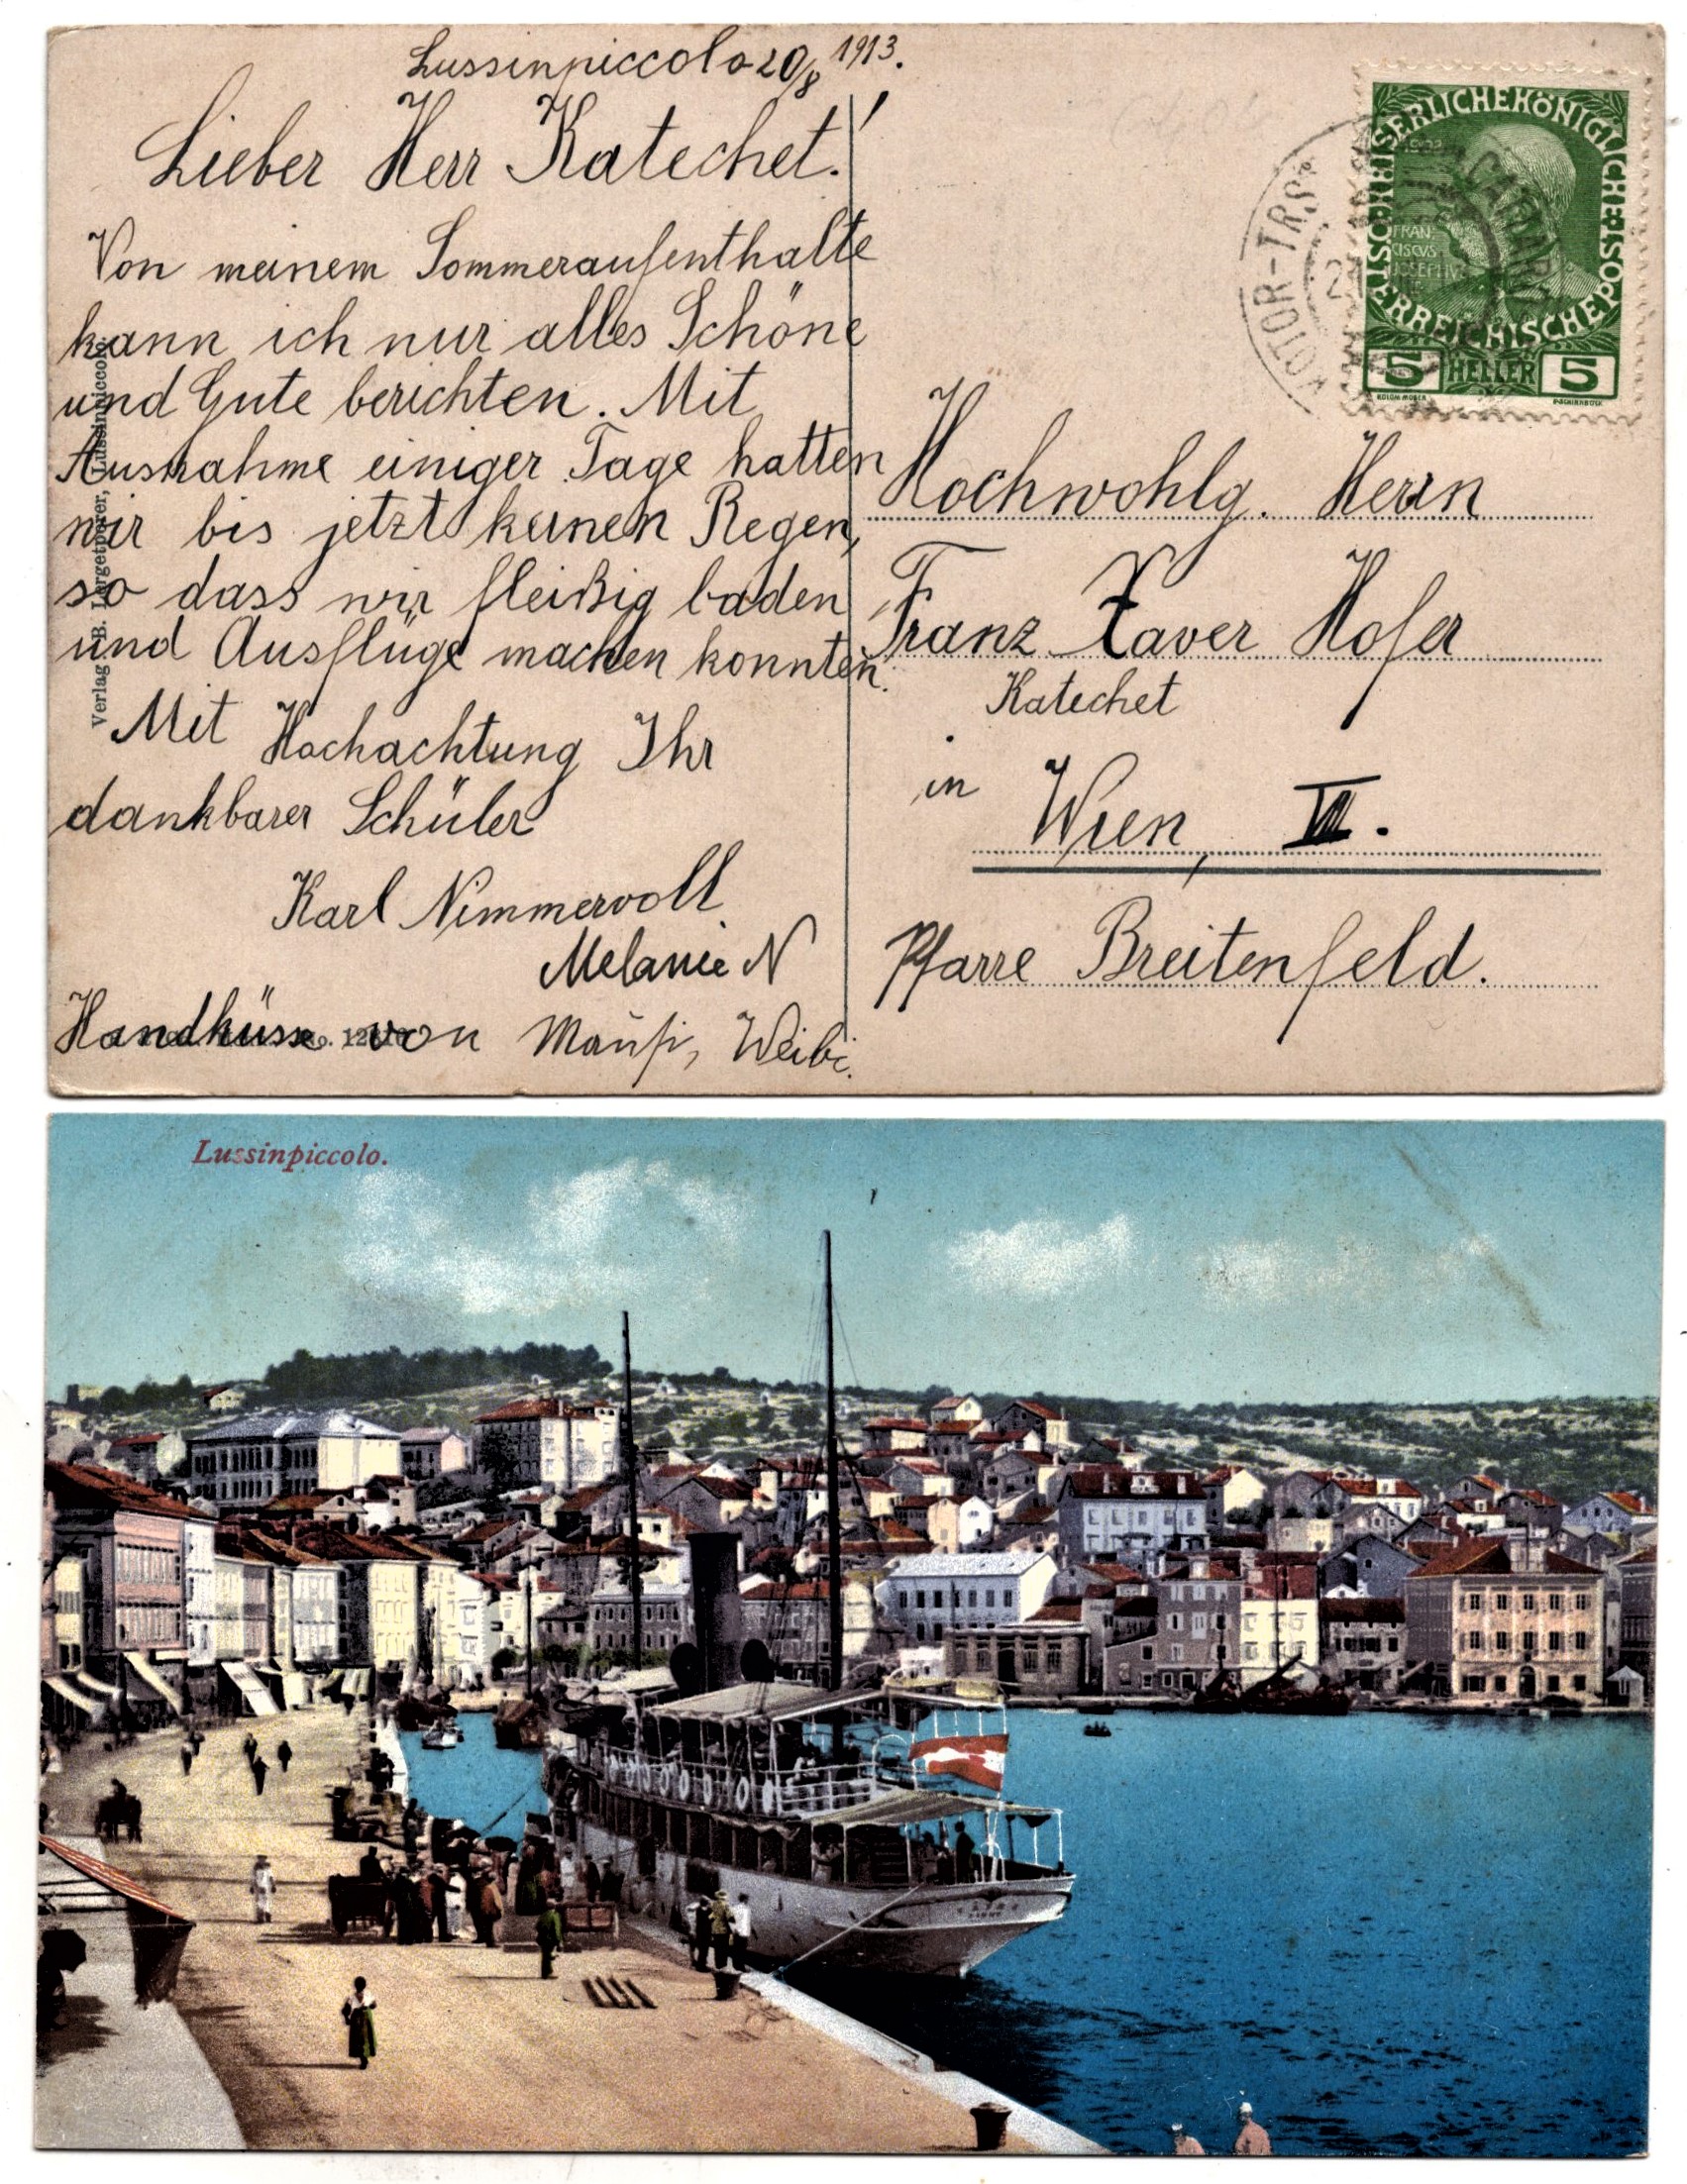 Lussinpiccolo 20/8 1913.
Lieber Herr Katechet!
Von meinem Sommeraufenthalte
kann ich nur alles Schöne
und Gute berichten. Mit
Ausnahme einiger Tage hatten
wir bis jetzt keinen Regen,
so dass wir fleißig baden
und Ausflüge machen konnten.
Mit Hochachtung Ihr
dankbarer Schüler
Karl Nimmervoll
Melanie N
Handküsse von
Verlag B. Lussinpiccolo.
KAISERLICHE KÖNIGLICHE ÖSTERREICHISCHE POST
FRAN-
CISCVS
JOSEPHVS
5 HELLER 5
KOLOM. MOSER
F. SCHIRNBÖCK
KOTOR-TRST
CATTARO
Hochwohlg. Herrn
Franz Xaver Hofer
Katechet
in
Wien,
Pfarre Breitenfeld.
Lussinpiccolo.